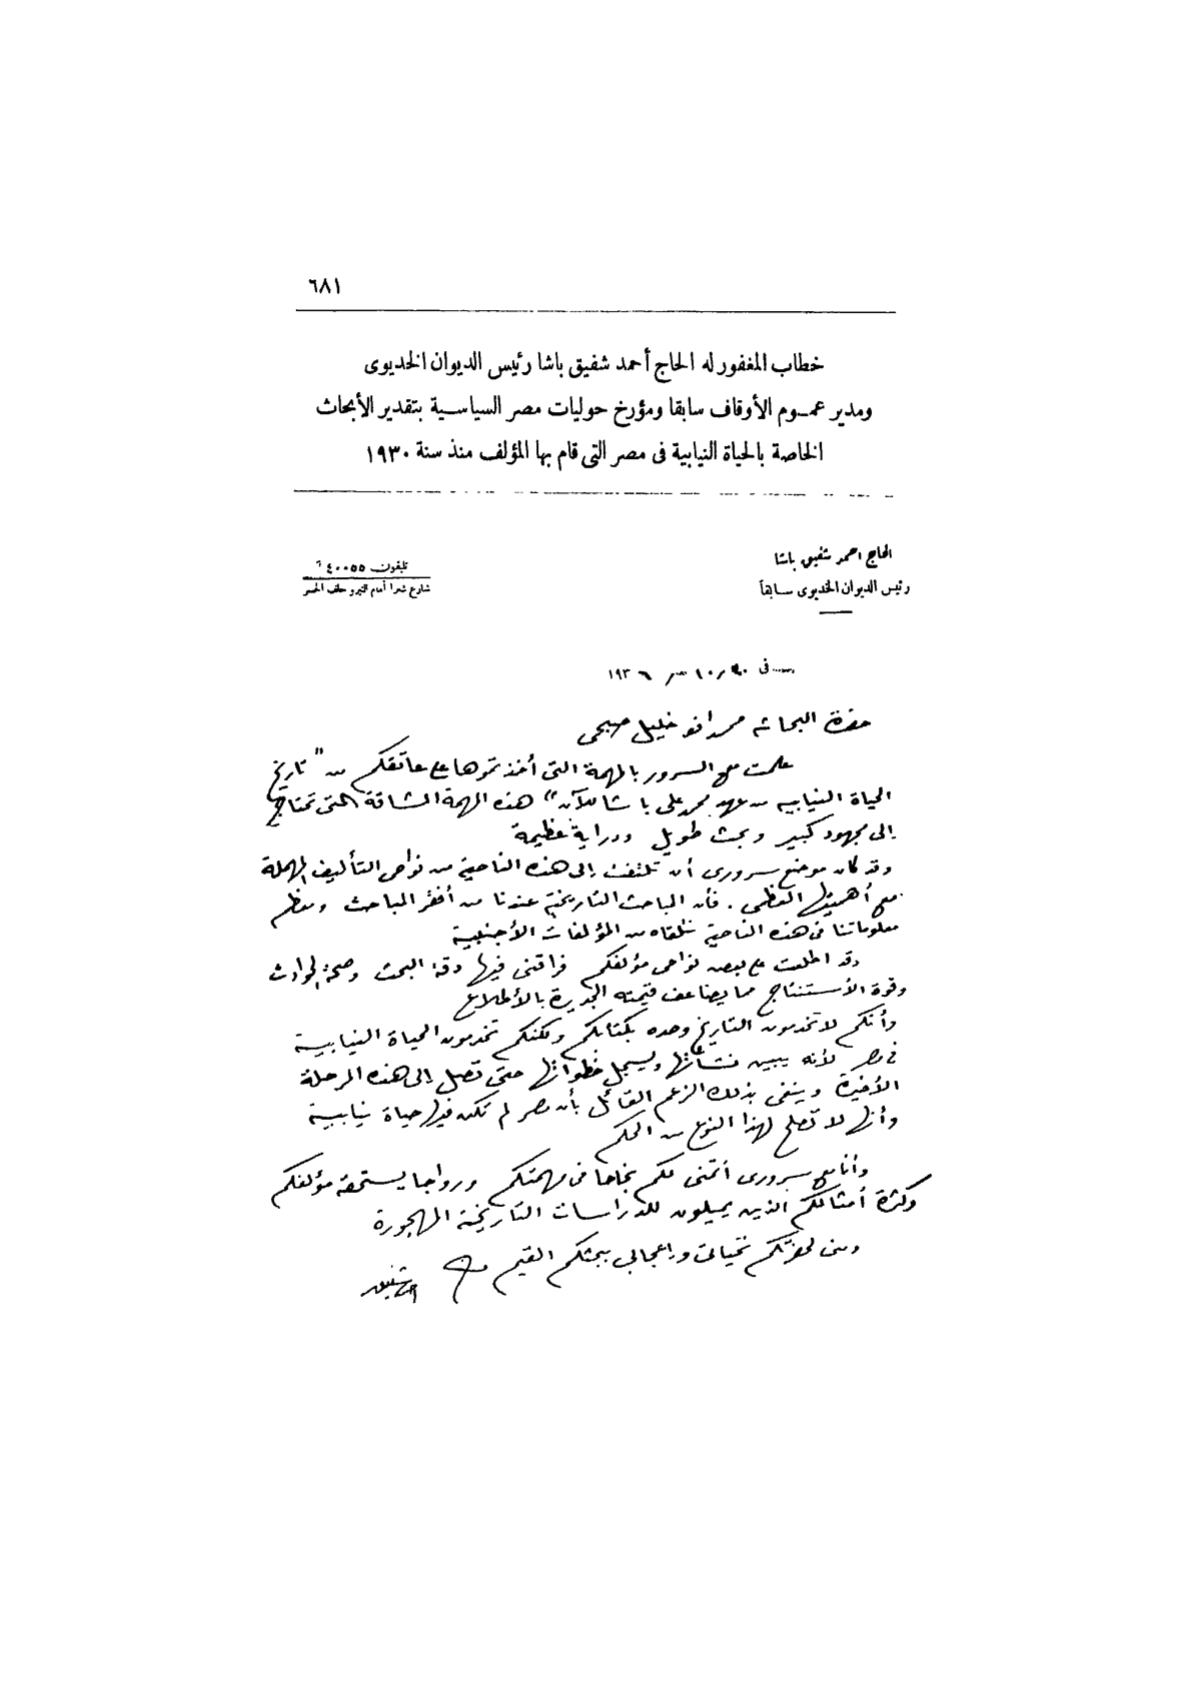 ٦٨١
خطاب المغفور له الحاج أحمد شفيق باشا رئيس الديوان الخديوى
ومدير عمـوم الأوقاف سابقا ومؤرخ حوليات مصر السياسـية بتقدير الأبحاث
الخاصة بالحياة النيابية فى مصر التى قام بها المؤلف منذ سنة ١٩٣٠
الحاج احمد شفيق باشا
رئيس الديوان الخديوى سـابقاً
تليفون ٤٠٠٥٥
شارع شبرا أمام النيرو خلف الجسر
فى ١٠ ١٩٣٦
حضرة البحاثه محمد افندى خليل صبحى
علمت مع السرور بالمهمة التى أخذتموها على عاتقكم من " تاريخ
الحياة النيابيه من عهد محمد على باشا للآن" هذه المهمة الشاقة التى تحتاج
إلى مجهود كبير وبحث طويل ودراية عظيمة
وقد كان موضع سرورى أن تلتفت إلى هذه الناحية من نواحى التأليف المهملة
مع أهميتها العظمى . فأن المباحث التاريخية عندنا من أفقر المباحث ومعظم
معلوماتنا فى هذه الناحية نتلقاه من المؤلفات الأجنبية
وقد اطلعت على بعض نواحى مؤلفكم فراقتنى فيها دقة البحث وصحة الحوادث
وقوة الأستنتاج مما يضاعف قيمته الجديرة بالأطلاع
وأنكم لا تخدمون التاريخ وحده بكتابكم ولكنكم تخدمون الحياة النيابية
فى مصر لأنه يبين نشأتها ويسجل خطواتها حتى تصل إلى هذه المرحلة
الأخيرة وينفى بذلك الزعم القائل بأن مصر لم تكن فيها حياة نيابية
وأنها لا تصلح لهذا النوع من الحكم
وأنا مع سرورى أتمنى لكم نجاحا فى مهمتكم ورواجا يستحقه مؤلفكم
وكثرة أمثالكم الذين يميلون للدراسات التاريخية المهجورة
ومنى لحضرتكم تحياتى وإعجابى ببحثكم القيم
احمد شفيق